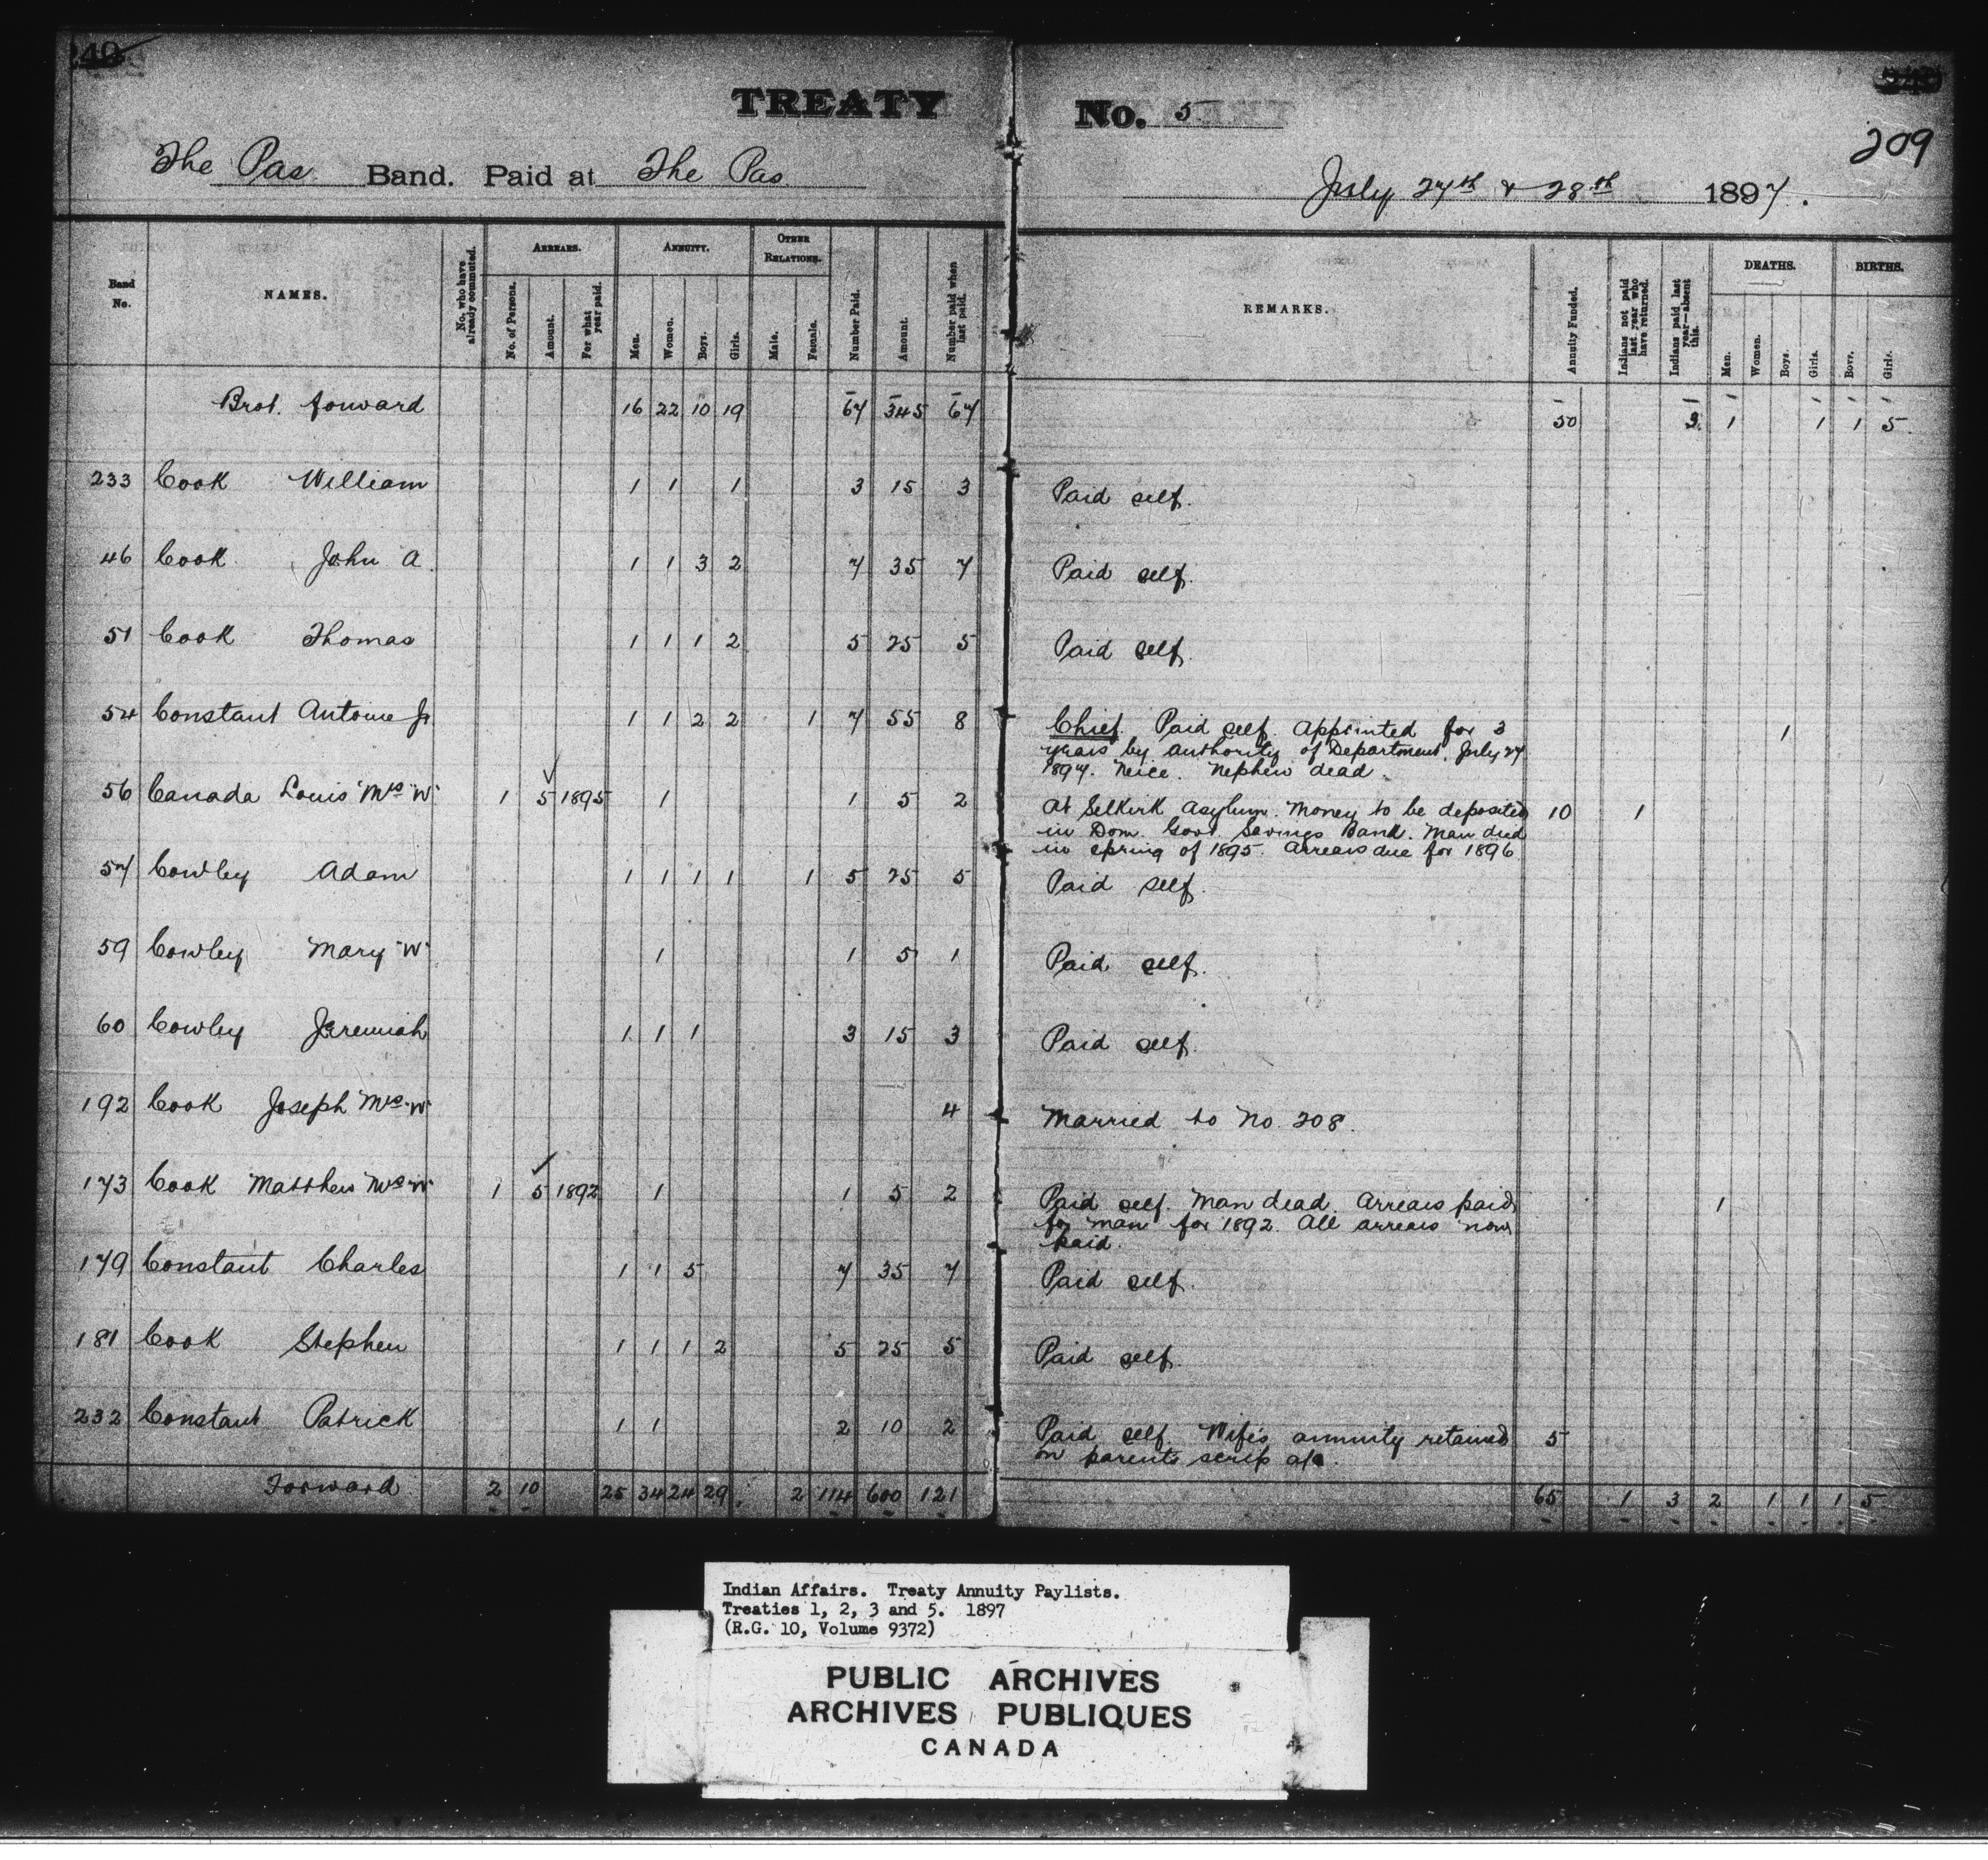 TREATY No. 5
209
The Pas Band. Paid at The Pas July 27th & 28th 1897.
Band No.
NAMES.
No. who have already commuted.
ARREARS.
No. of Persons.
Amount.
For what year paid.
ANNUITY.
Men.
Women.
Boys.
Girls.
OTHER RELATIONS.
Male.
Female.
Number Paid.
Amount.
Number paid when last paid.
REMARKS.
Annuity Funded.
Indians not paid last year who have returned.
Indians paid last year—absent this.
DEATHS.
Men.
Women.
Boys.
Girls.
BIRTHS.
Boys.
Girls.
Brot. forward 16 22 10 19 67 345 67 50 3 1 1 1 5
233 Cook William 1 1 1 3 15 3 Paid self.
46 Cook John A. 1 1 3 2 7 35 7 Paid self.
51 Cook Thomas 1 1 1 2 5 25 5 Paid self.
54 Constant Antoine Jr 1 1 2 2 1 7 55 8 Chief. Paid self. Appointed for 3 1
years by authority of Department, July 27
1897. Neice. Nephew dead.
56 Canada Louis Mrs "W" 1 5 1895 1 1 5 2 At Selkirk Asylum. Money to be deposited 10 1
in Dom. Govt. Savings Bank. Man died
in spring of 1895. Arrears due for 1896
57 Cowley Adam 1 1 1 1 1 5 25 5 Paid self.
59 Cowley Mary "W" 1 1 5 1 Paid self.
60 Cowley Jeremiah 1 1 1 3 15 3 Paid self.
192 Cook Joseph Mrs "W" 4 Married to No. 208.
173 Cook Matthew Mrs "W" 1 5 1892 1 1 5 2 Paid self. Man dead. Arrears paid 1
for man for 1892. All arrears now
paid.
179 Constant Charles 1 1 5 7 35 7 Paid self.
181 Cook Stephen 1 1 1 2 5 25 5 Paid self.
232 Constant Patrick 1 1 2 10 2 Paid self. Wife's annuity retained 5
on parents scrip a/c.
Forward 2 10 25 34 24 29 2 114 600 121 65 1 3 2 1 1 1 5
Indian Affairs. Treaty Annuity Paylists.
Treaties 1, 2, 3 and 5. 1897
(R.G. 10, Volume 9372)
PUBLIC ARCHIVES
ARCHIVES PUBLIQUES
CANADA